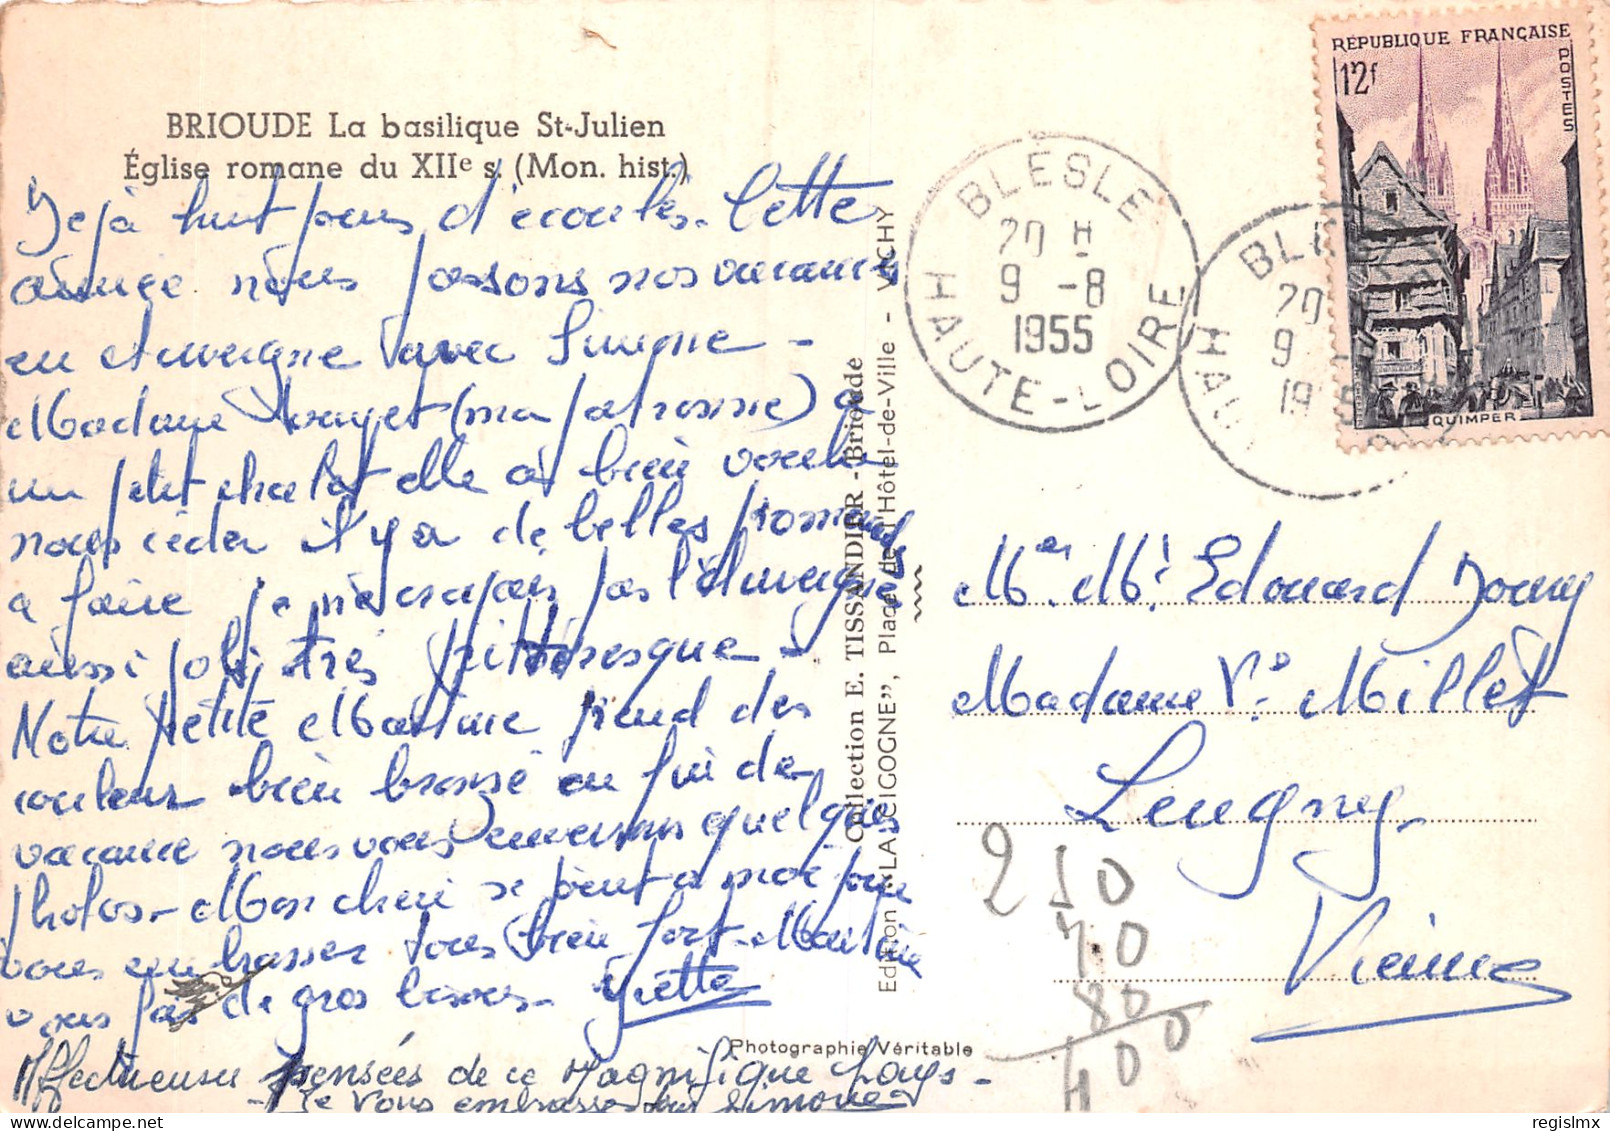 BRIOUDE La basilique St-Julien
Église romane du XIIe s. (Mon. hist.)
Déjà huit jours d'écoulés. Cette
année nous passons nos vacances
en Auvergne avec Simone -
Madame (ma patronne) a
un petit chalet elle a bien voulu
nous céder il y a de belles promenades
a faire je ne croyais pas l'Auvergne
aussi joli, très pittoresque -
Notre petite Martine prend des
couleurs bien bronzé en fin de
vacance nous vous enverrons quelques
photos - Mon cheri se joint a moi pour
vous embrasser tous bien fort - Martine
vous fait de gros bises - Yvette
Affectueuses pensées de ce Magnifique Pays -
- Je vous embrasse Simone
Collection E. TISSANDIER - Brioude
Edition "LA CIGOGNE", Place de l'Hôtel-de-Ville - VICHY
Photographie Véritable
BLESLE
20 H
9 -8
1955
HAUTE-LOIRE
BLE
20
9 -
19 5
HAU
RÉPUBLIQUE FRANÇAISE
12f
POSTES
QUIMPER
Mr. Edouard
Madame Ve. Millet
Leugny.
Vienne
250
70
80
400
www.delcampe.net
regislmx